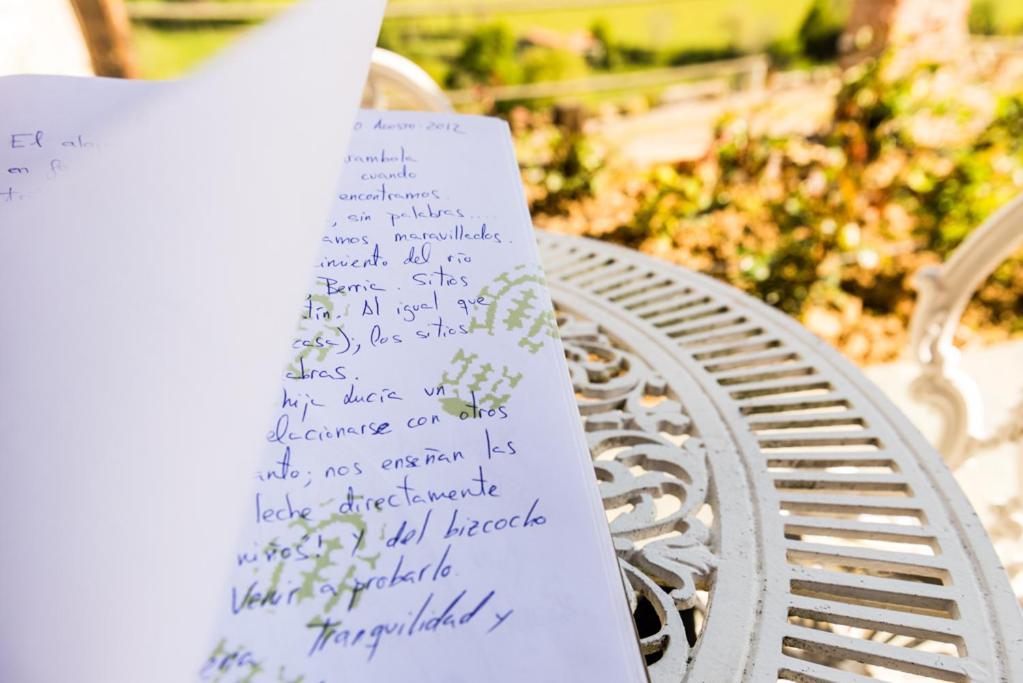 El
en
Agosto-2012
rambola
cuando
encontramos.
, sin palabras....
amos maravillados.
imiento del río
, Berria. Sitios
tín. Al igual que
casa), los sitios
abras.
hija lucía un
elacionarse con otros
anto; nos enseñan las
leche directamente
niños! y del bizcocho
Venir a probarlo.
tranquilidad y
eria